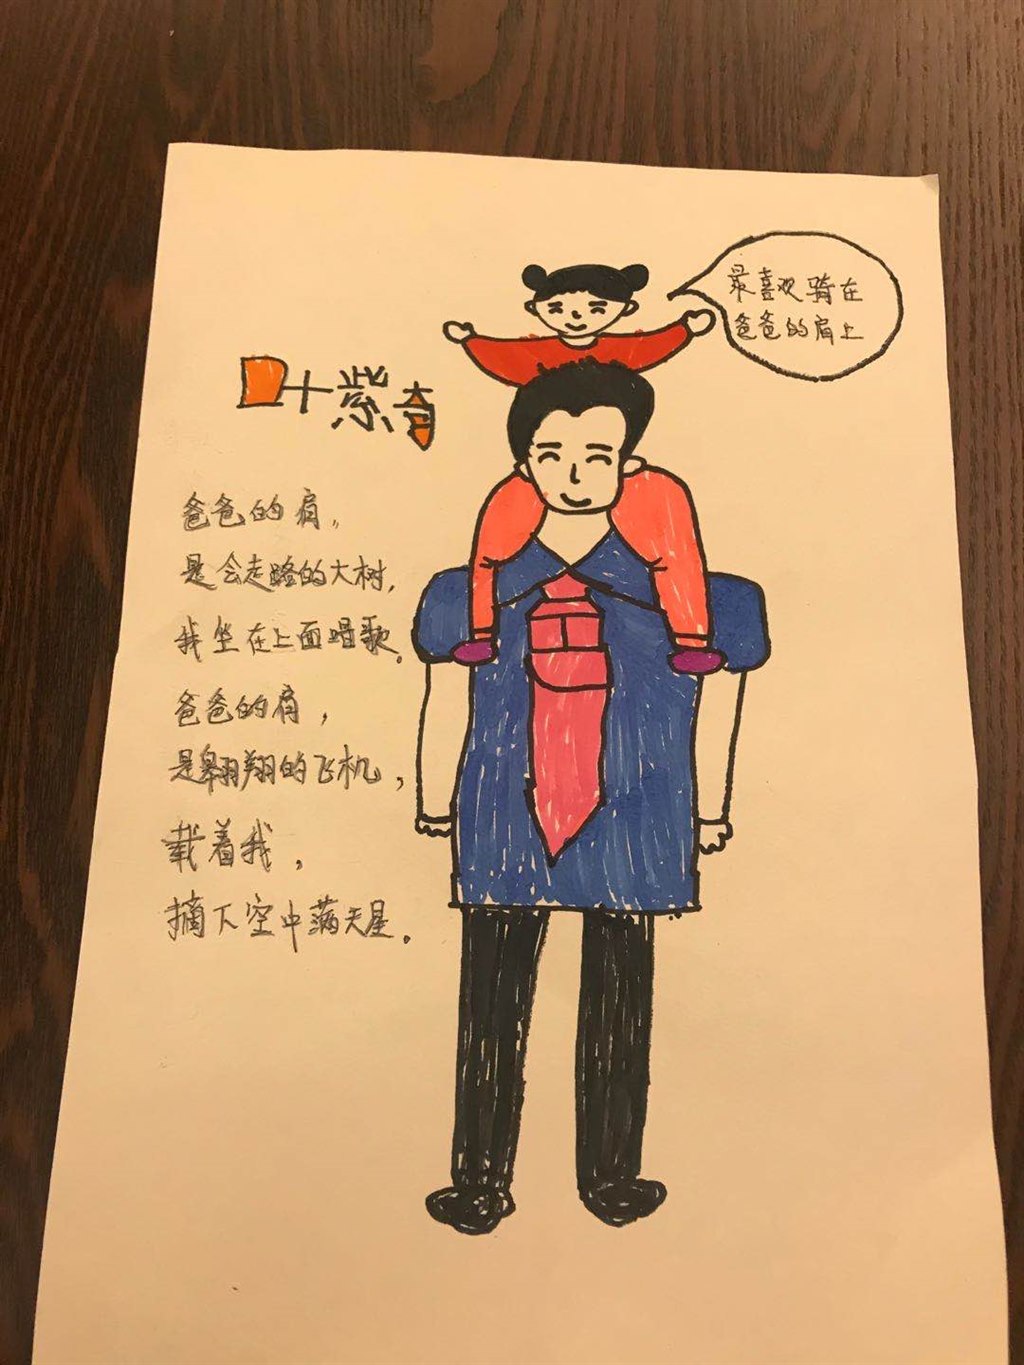 最喜欢骑在
爸爸的肩上
叶紫奇
爸爸的肩，
是会走路的大树，
我坐在上面唱歌。
爸爸的肩，
是翱翔的飞机，
载着我，
摘下空中满天星。